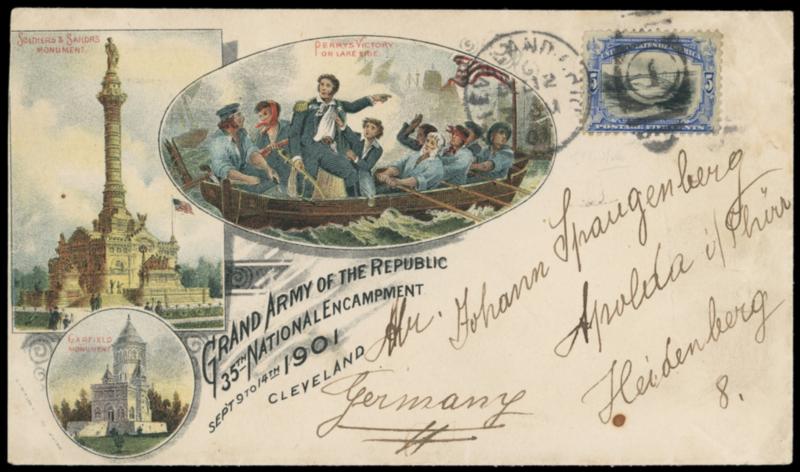 SOLDIERS & SAILORS
MONUMENT.
PERRYS VICTORY
ON LAKE ERIE.
GARFIELD
MONUMENT.
GRAND ARMY OF THE REPUBLIC
35TH NATIONAL ENCAMPMENT
SEPT 9 TO 14TH 1901
CLEVELAND
UNITED STATES OF AMERICA
5 5
POSTAGE FIVE CENTS
Mr. Johann Spangenberg
Apolda i/Thür
Heidenberg
8.
Germany